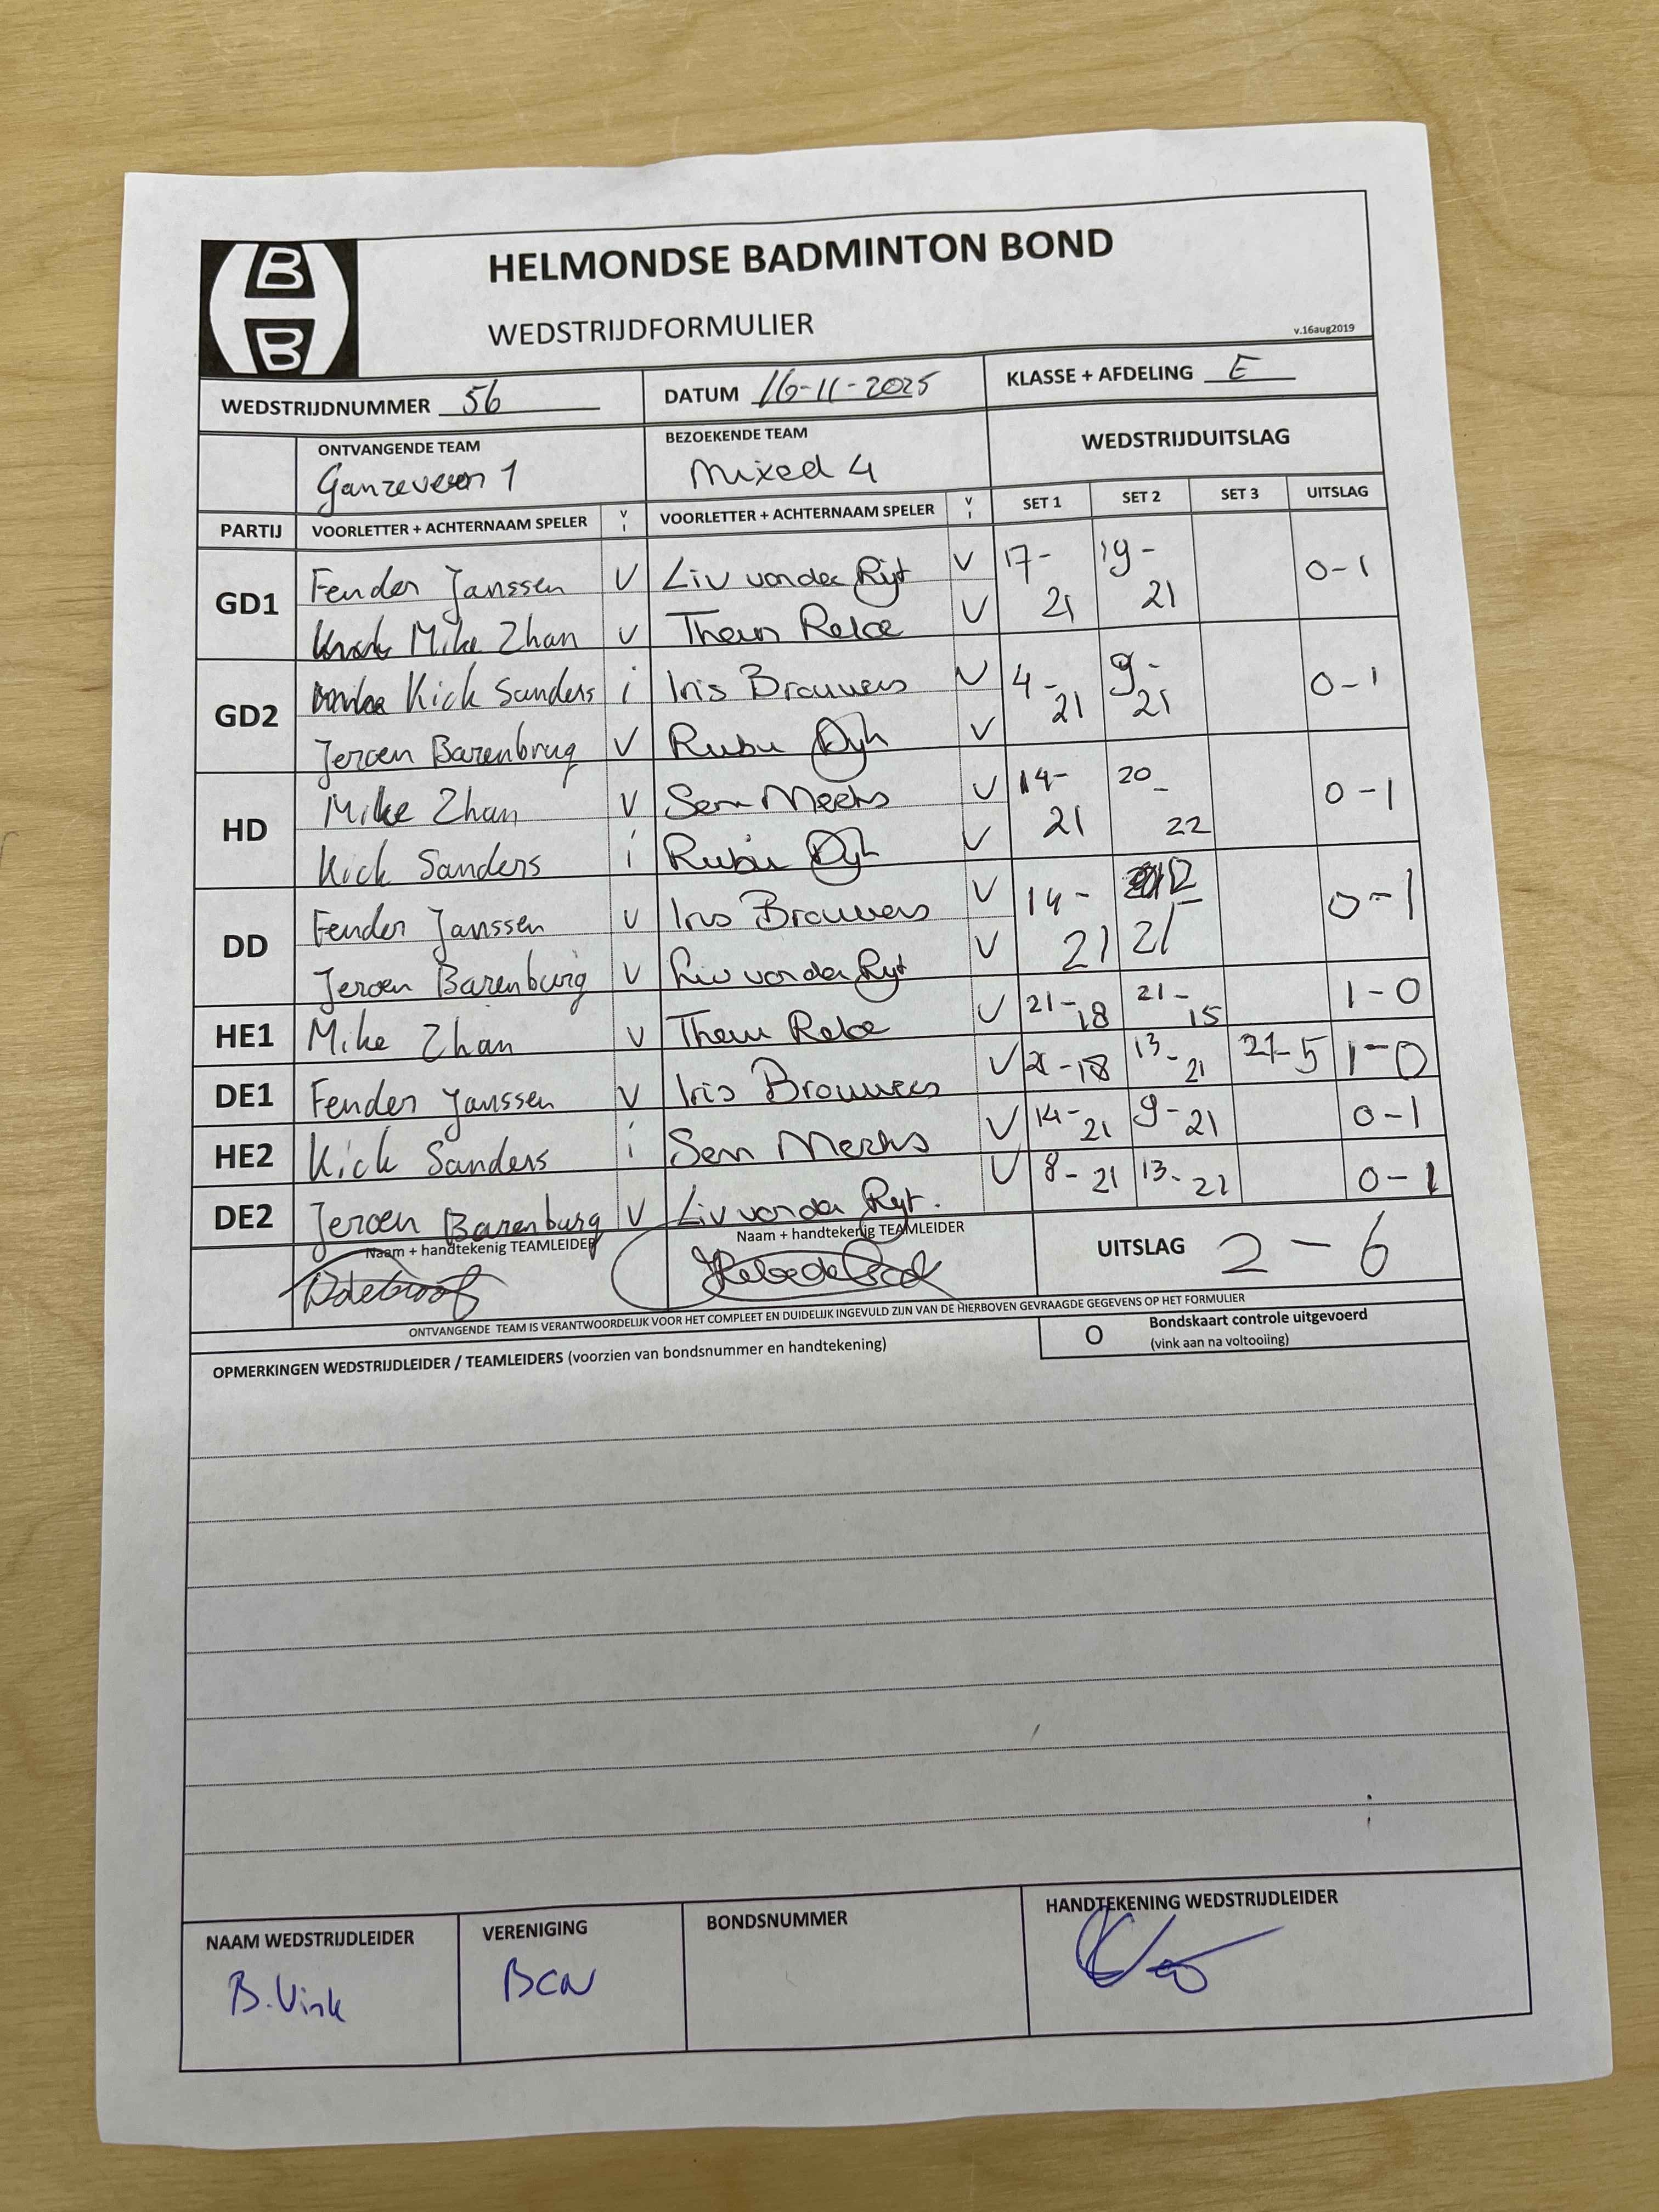 B
B
HELMONDSE BADMINTON BOND
WEDSTRIJDFORMULIER
v.16aug2019
WEDSTRIJDNUMMER 56 DATUM 16-11-2025 KLASSE + AFDELING E
ONTVANGENDE TEAM BEZOEKENDE TEAM WEDSTRIJDUITSLAG
Ganzeveren 1 Mixed 4
PARTIJ VOORLETTER + ACHTERNAAM SPELER V I VOORLETTER + ACHTERNAAM SPELER V I SET 1 SET 2 SET 3 UITSLAG
GD1 Fender Janssen V Liv van der Rijt V 17-21 19-21 0-1
Mike Zhan V Theun V
GD2 Kick Sanders i Iris Brouwers V 4-21 9-21 0-1
Jeroen Barenbrug V V
HD Mike Zhan V Sem V 14-21 20-22 0-1
Kick Sanders i V
DD Fender Janssen V Iris Brouwers V 14-21 12-21 0-1
Jeroen Barenburg V Liv van der Rijt V
HE1 Mike Zhan V Theun V 21-18 21-15 1-0
DE1 Fender Janssen V Iris Brouwers V 21-18 13-21 21-5 1-0
HE2 Kick Sanders i Sem V 14-21 9-21 0-1
DE2 Jeroen Barenburg V Liv van der Rijt. V 8-21 13-21 0-1
Naam + handtekenig TEAMLEIDER Naam + handtekenig TEAMLEIDER UITSLAG 2-6
ONTVANGENDE TEAM IS VERANTWOORDELIJK VOOR HET COMPLEET EN DUIDELIJK INGEVULD ZIJN VAN DE HIERBOVEN GEVRAAGDE GEGEVENS OP HET FORMULIER
OPMERKINGEN WEDSTRIJDLEIDER / TEAMLEIDERS (voorzien van bondsnummer en handtekening)
O Bondskaart controle uitgevoerd
(vink aan na voltooiing)
NAAM WEDSTRIJDLEIDER VERENIGING BONDSNUMMER HANDTEKENING WEDSTRIJDLEIDER
B. Vink BCN